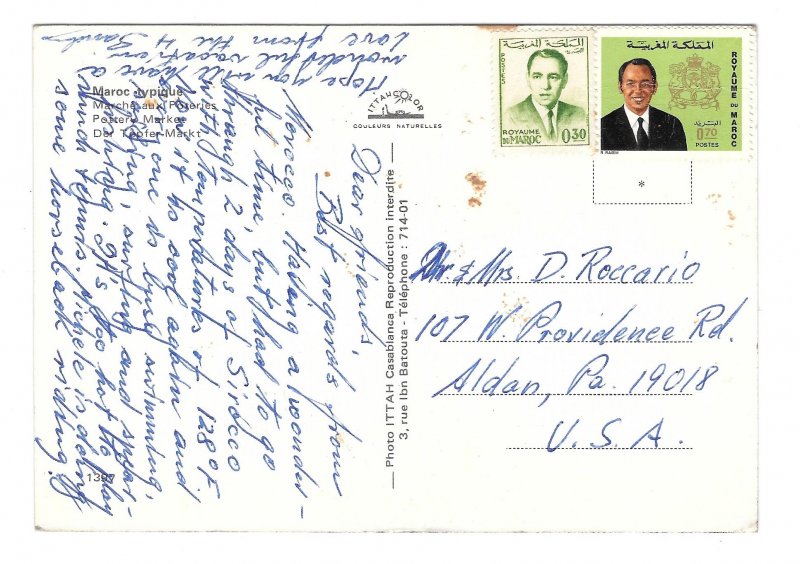 Maroc typique
Marché aux Poteries
Pottery Market
Der Töpfer-Markt
ITTAHCOLOR
COULEURS NATURELLES
Dear friends,
Best regards from
Morocco. Having a wonder-
ful time, but had to go
through 2 days of Sirocco
with temperatures of 128° F
Now it's cool again and
everyone is busy swimming,
surfing and spear-
fishing. It's too hot to play
much tennis. Michele is doing
some horseback riding!
Hope you will have a
wonderful vacation.
Love from the 4
1397
Photo ITTAH Casablanca Reproduction interdite
3, rue Ibn Batouta - Téléphone : 714-01
المملكة المغربية
POSTES
ROYAUME
DU MAROC
0,30
المملكة المغربية
ROYAUME DU MAROC
البريد
0,70
POSTES
*
Mr & Mrs. D. Roccario
107 W. Providence Rd.
Aldan, Pa. 19018
U.S.A.